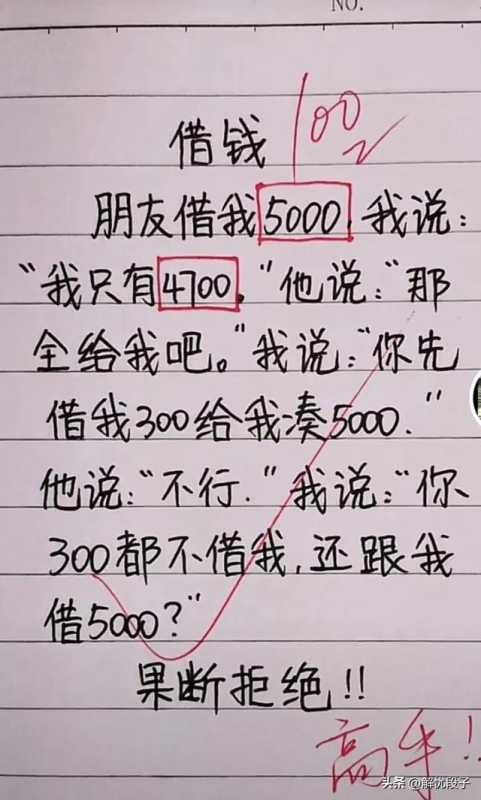 NO.
100
借钱
朋友借我5000,我说:
“我只有4700。”他说:“那
全给我吧。”我说:“你先
借我300给我凑5000.”
他说:“不行.”我说:“你
300都不借我,还跟我
借5000?”
果断拒绝!!
高手!
头条 @解忧段子